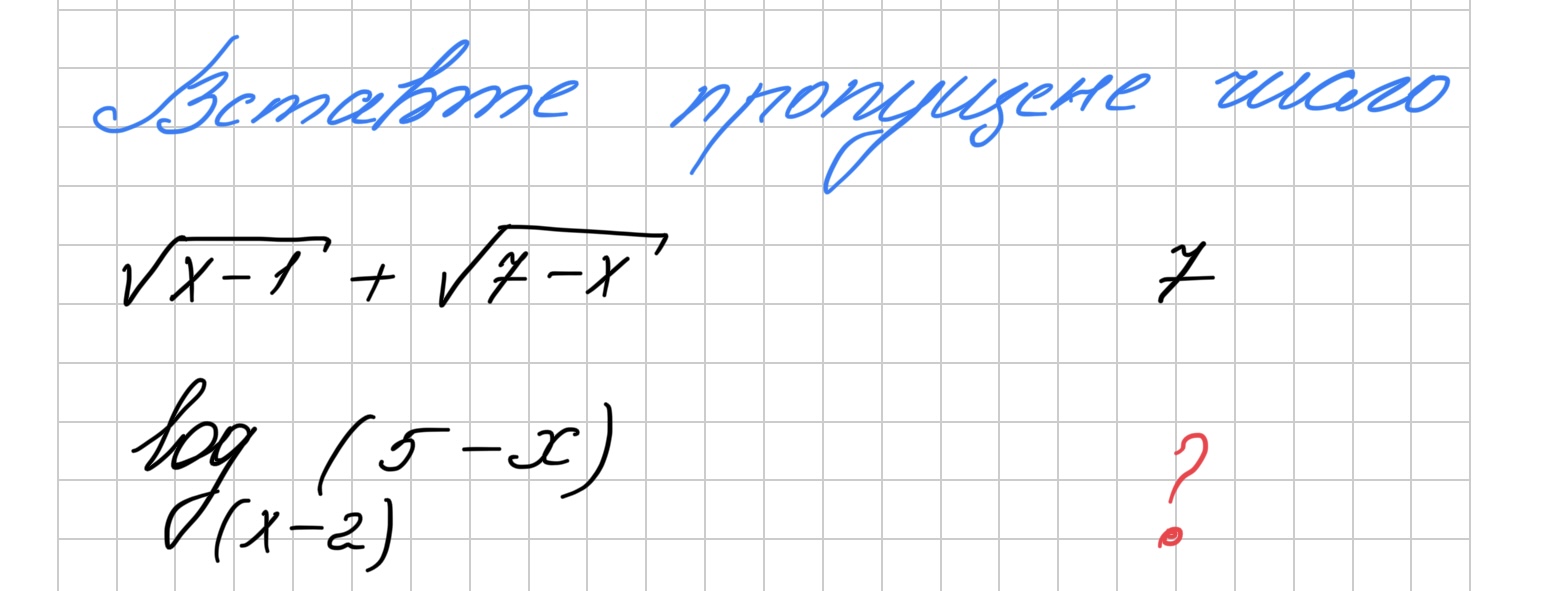 Вставте пропущене число
√(x-1) + √(7-x) 7
log_(x-2) (5-x) ?